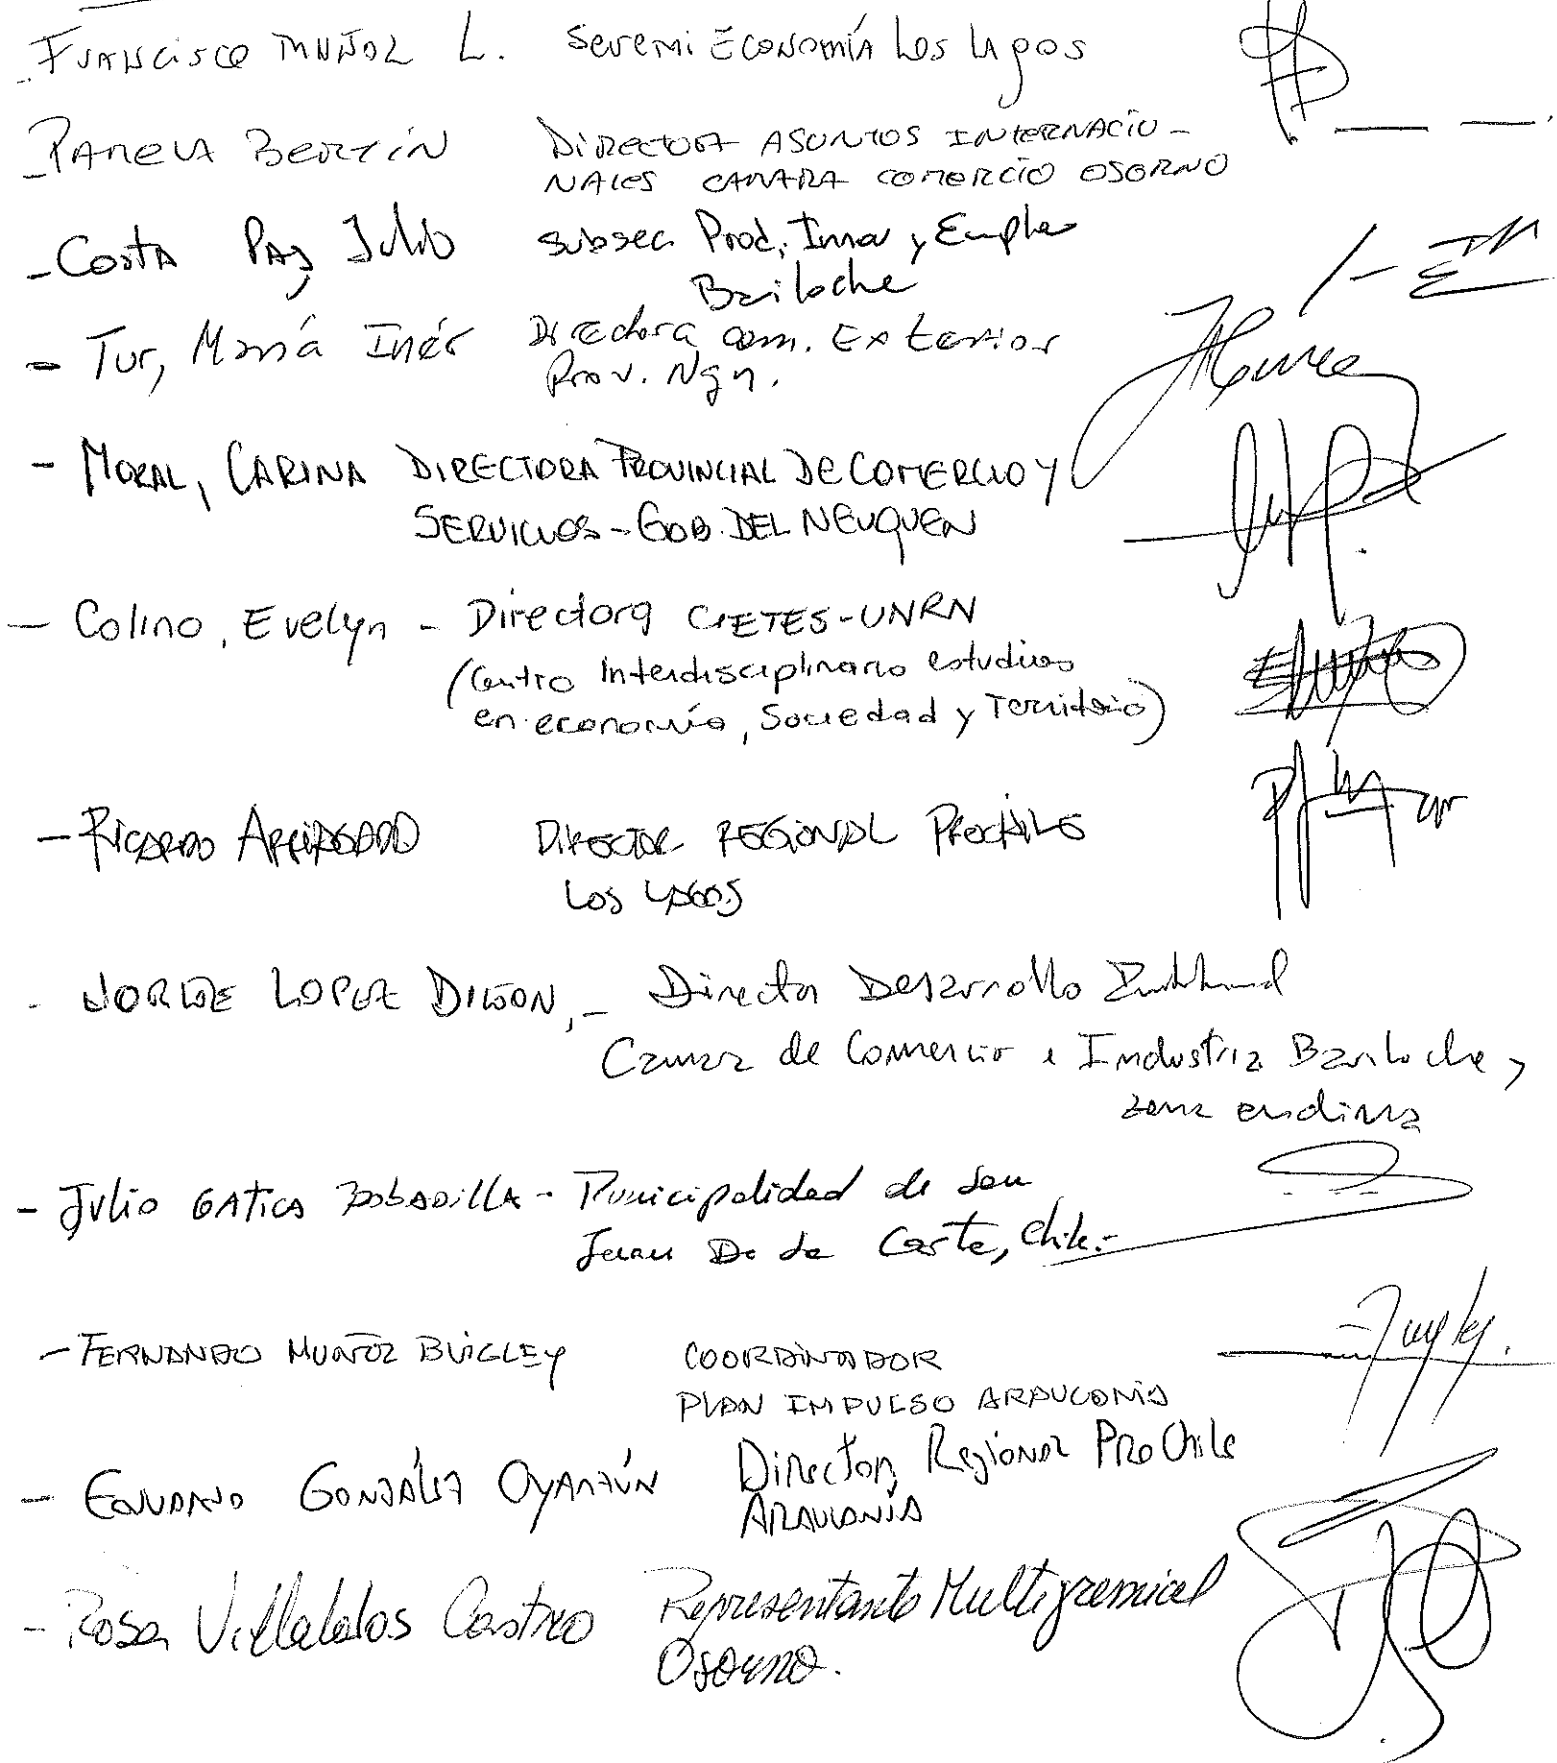 - Francisco Muñoz L. Seremi Economía Los Lagos
- Pamela Bertín Directora Asuntos Internacio-
nales Camara Comercio Osorno
- Costa Paz, Julio Subsec. Prod, Innov y Empleo
Bariloche
- Tur, María Inés Directora Com. Exterior
Prov. Nqn.
- Moral, Carina Directora Provincial de Comercio y
Servicios - Gob. del Neuquen
- Colino, Evelyn - Directora CIETES-UNRN
(Centro Interdisciplinario estudios
en economía, Sociedad y Territorio)
- Ricardo Director Regional ProChile
Los Lagos
- Jorge Lopez - Director Desarrollo
Camara de Comercio e Industria Bariloche y
zona andina
- Julio Gatica Bobadilla - Municipalidad de San
Juan De la Costa, Chile.-
- Fernando Muñoz Buigley Coordinador
Plan Impulso Araucanía
- Eduardo González Oyarzún Director Regional ProChile
Araucanía
- Rosa Villalobos Castro Representante Multigremial
Osorno.